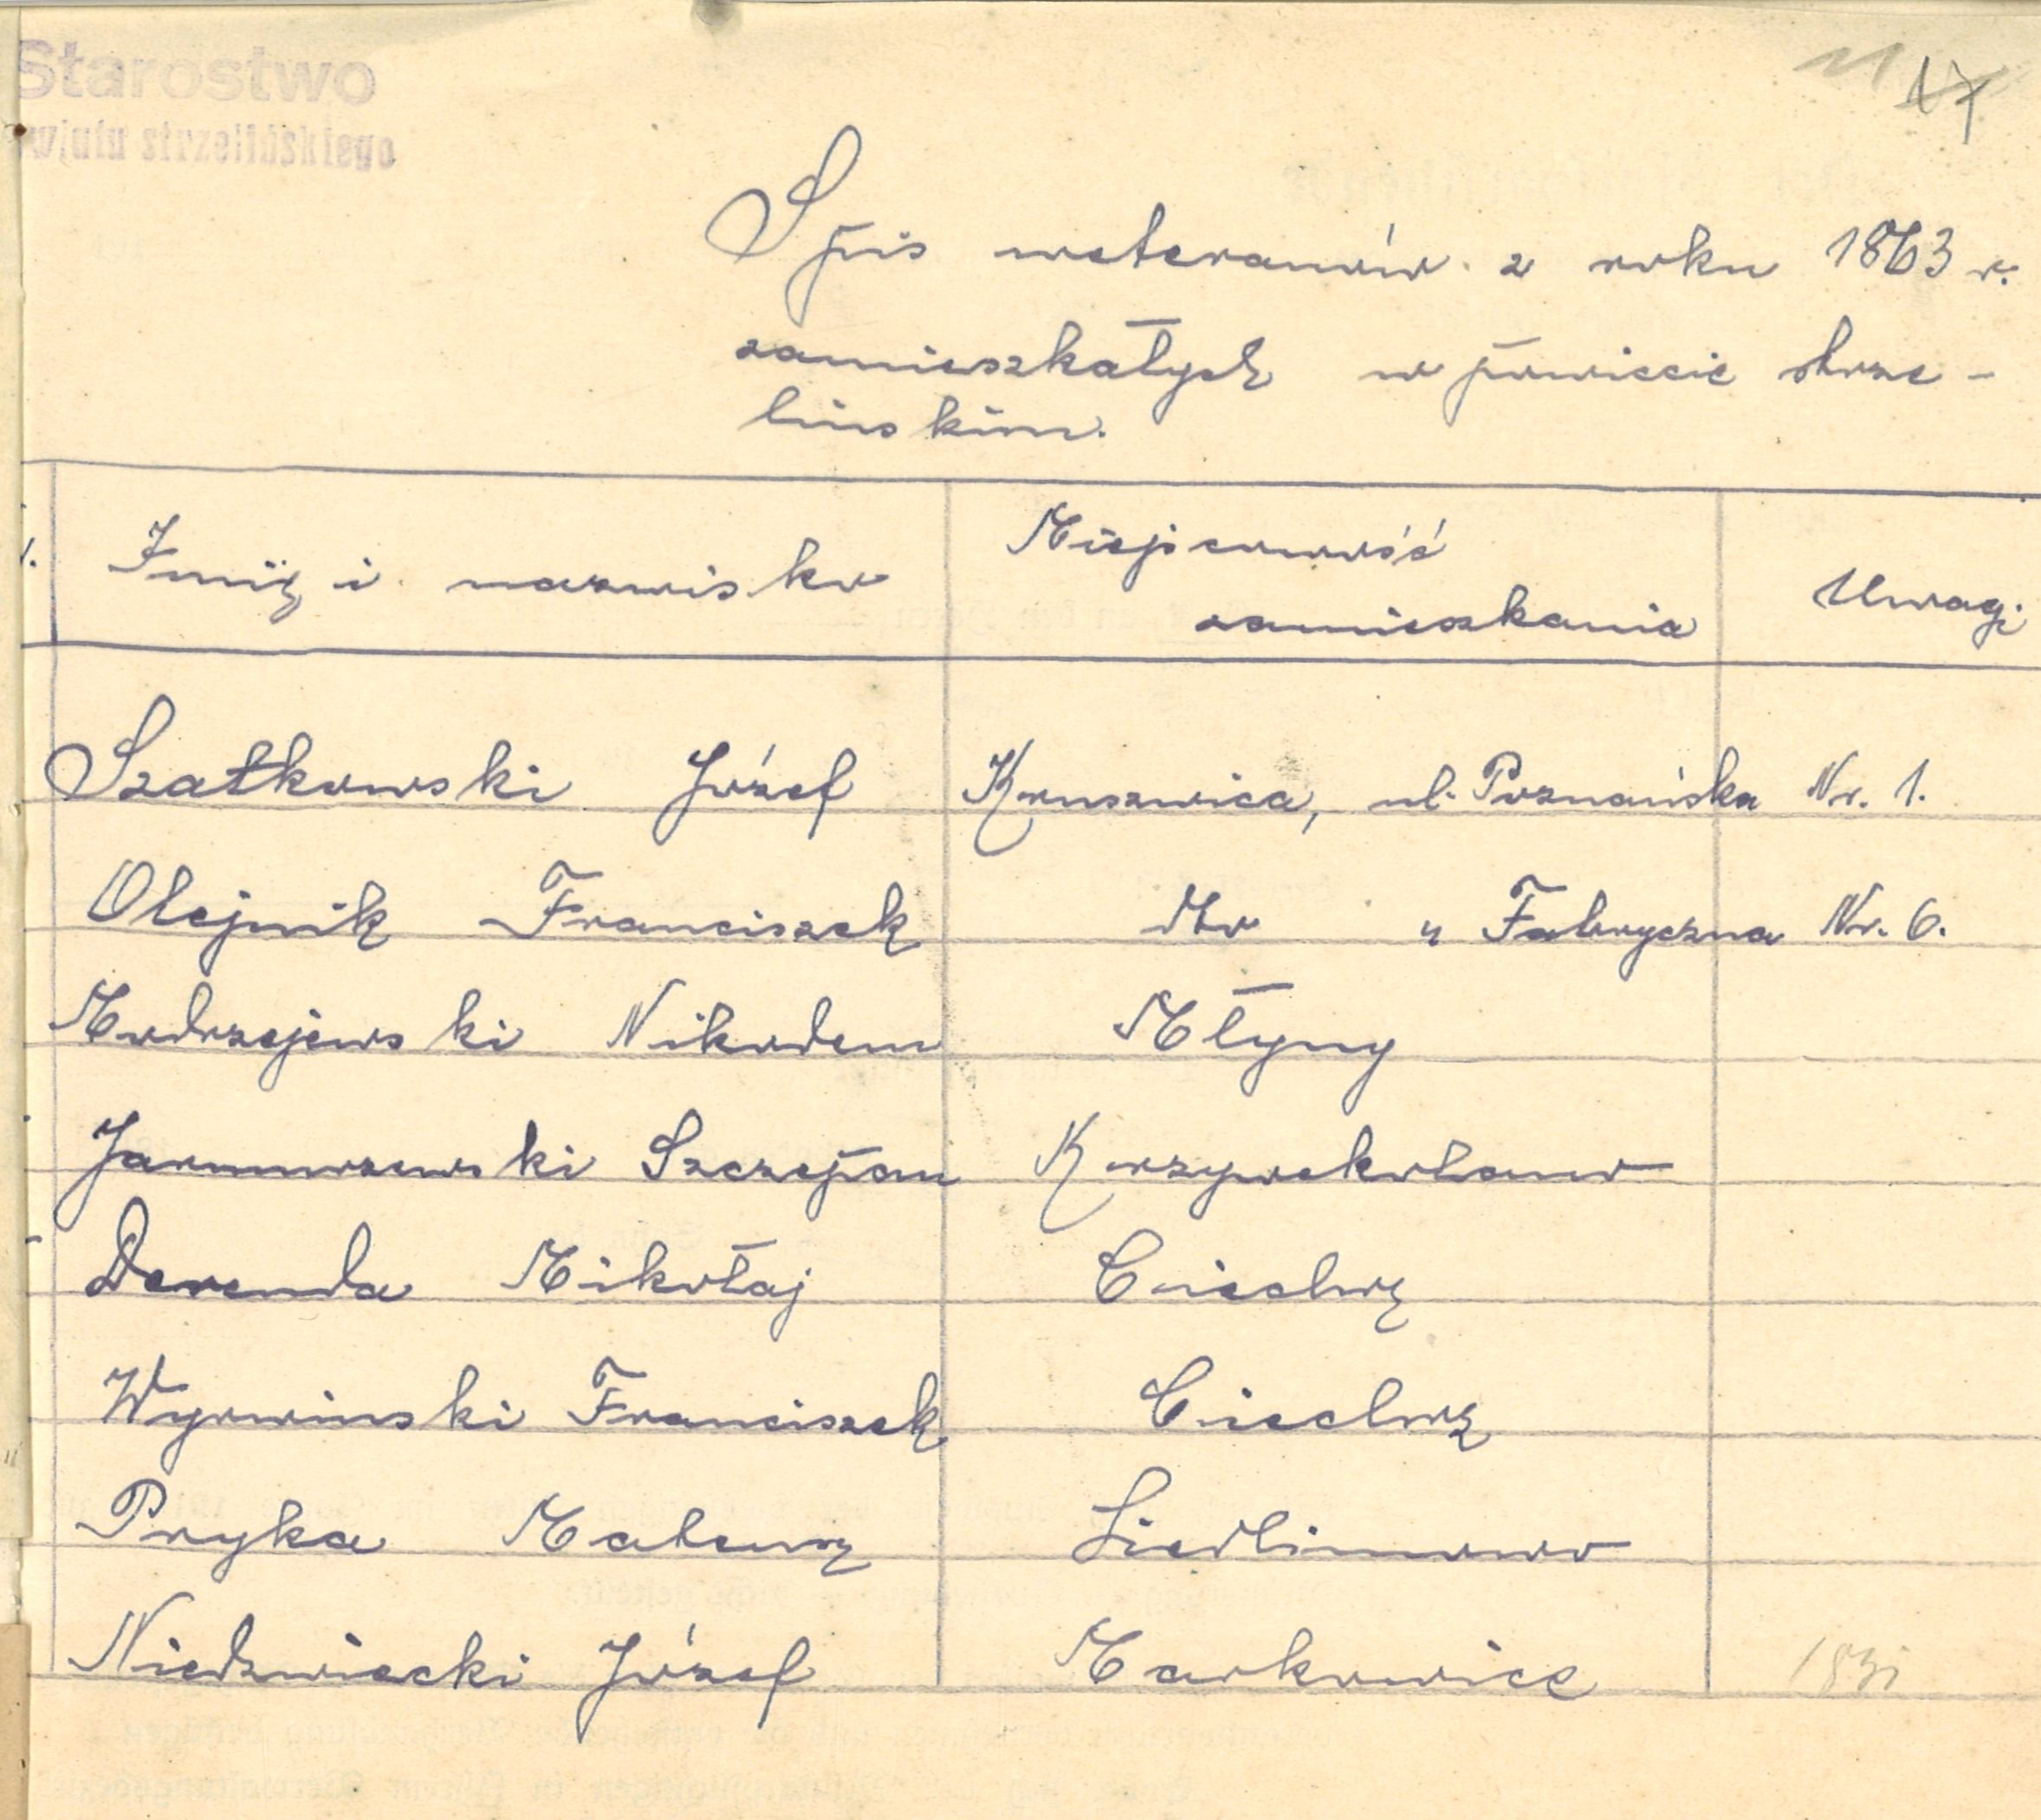 Starostwo
powiatu strzelińskiego
17
Spis weteranów z roku 1863 r.
zamieszkałych w powiecie strze-
lińskim.
Imię i nazwisko
Miejscowość
zamieszkania
Uwagi
Szatkowski Józef Kruszwica, ul. Poznańska Nr. 1.
Olejnik Franciszek " Fabryczna Nr. 6.
Modrzejewski Nikodem Młyny
Szczepan
Derenda Mikołaj Ciechrz
Wyrwinski Franciszek Ciechrz
Pryka Mateusz Siedlimowo
Niedzwiecki Józef Markowice